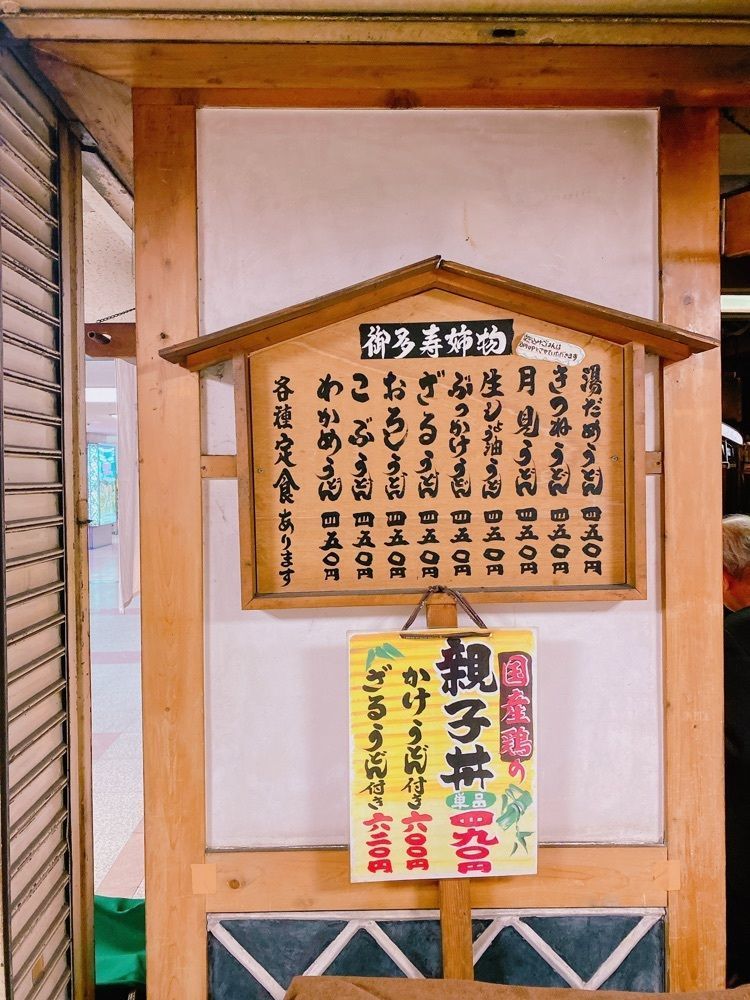 御多寿姉物
湯だめうどん 四五〇円
きつねうどん 四五〇円
月見うどん 四五〇円
生しょう油うどん 四五〇円
ぶっかけうどん 四五〇円
ざるうどん 四五〇円
おろしうどん 四五〇円
こぶうどん 四五〇円
わかめうどん 四五〇円
各種定食あります
国産鶏の
親子丼 単品 四九〇円
かけうどん付き 六〇〇円
ざるうどん付き 六二〇円